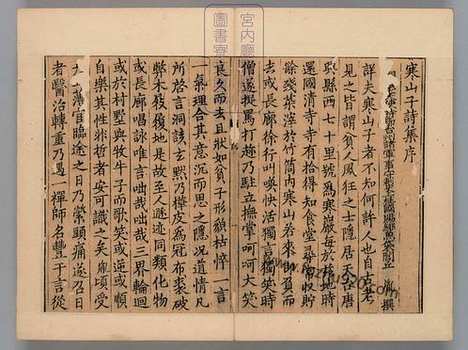 宮内廳
圖書寮
寒山子詩集序
撰
詳夫寒山子者不知何許人也自古老
見之皆謂貧人風狂之士隱居天台唐
興縣西七十里號為寒巖每於茲地時
還國清寺寺有拾得知食堂尋常收貯
餘殘菜滓於竹筒內寒山若來即負而
去或長廊徐行叫喚快活獨言獨笑時
僧遂捉罵打趁乃駐立撫掌呵呵大笑
良久而去且狀如貧子形貌枯悴一言
一氣理合其意沉而思之隱況道情凡
所啓言洞該玄默乃樺皮為冠布裘破
弊木屐履地是故至人遯迹同類化物
或長廊唱詠唯言咄哉咄哉三界輪迴
或於村墅與牧牛子而歌笑或逆或順
自樂其性非哲者安可識之矣胤頃受
薄宦臨途之日乃縈頭痛遂召日
者醫治轉重乃遇一禪師名豐干言從